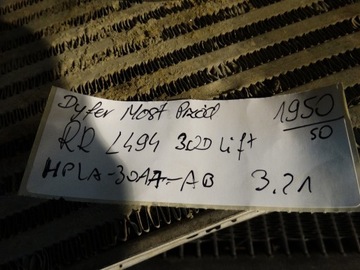 Dyfer Most Przód 1950/50
RR L494 3.0D Lift
HPLA-3017-AB 3.21